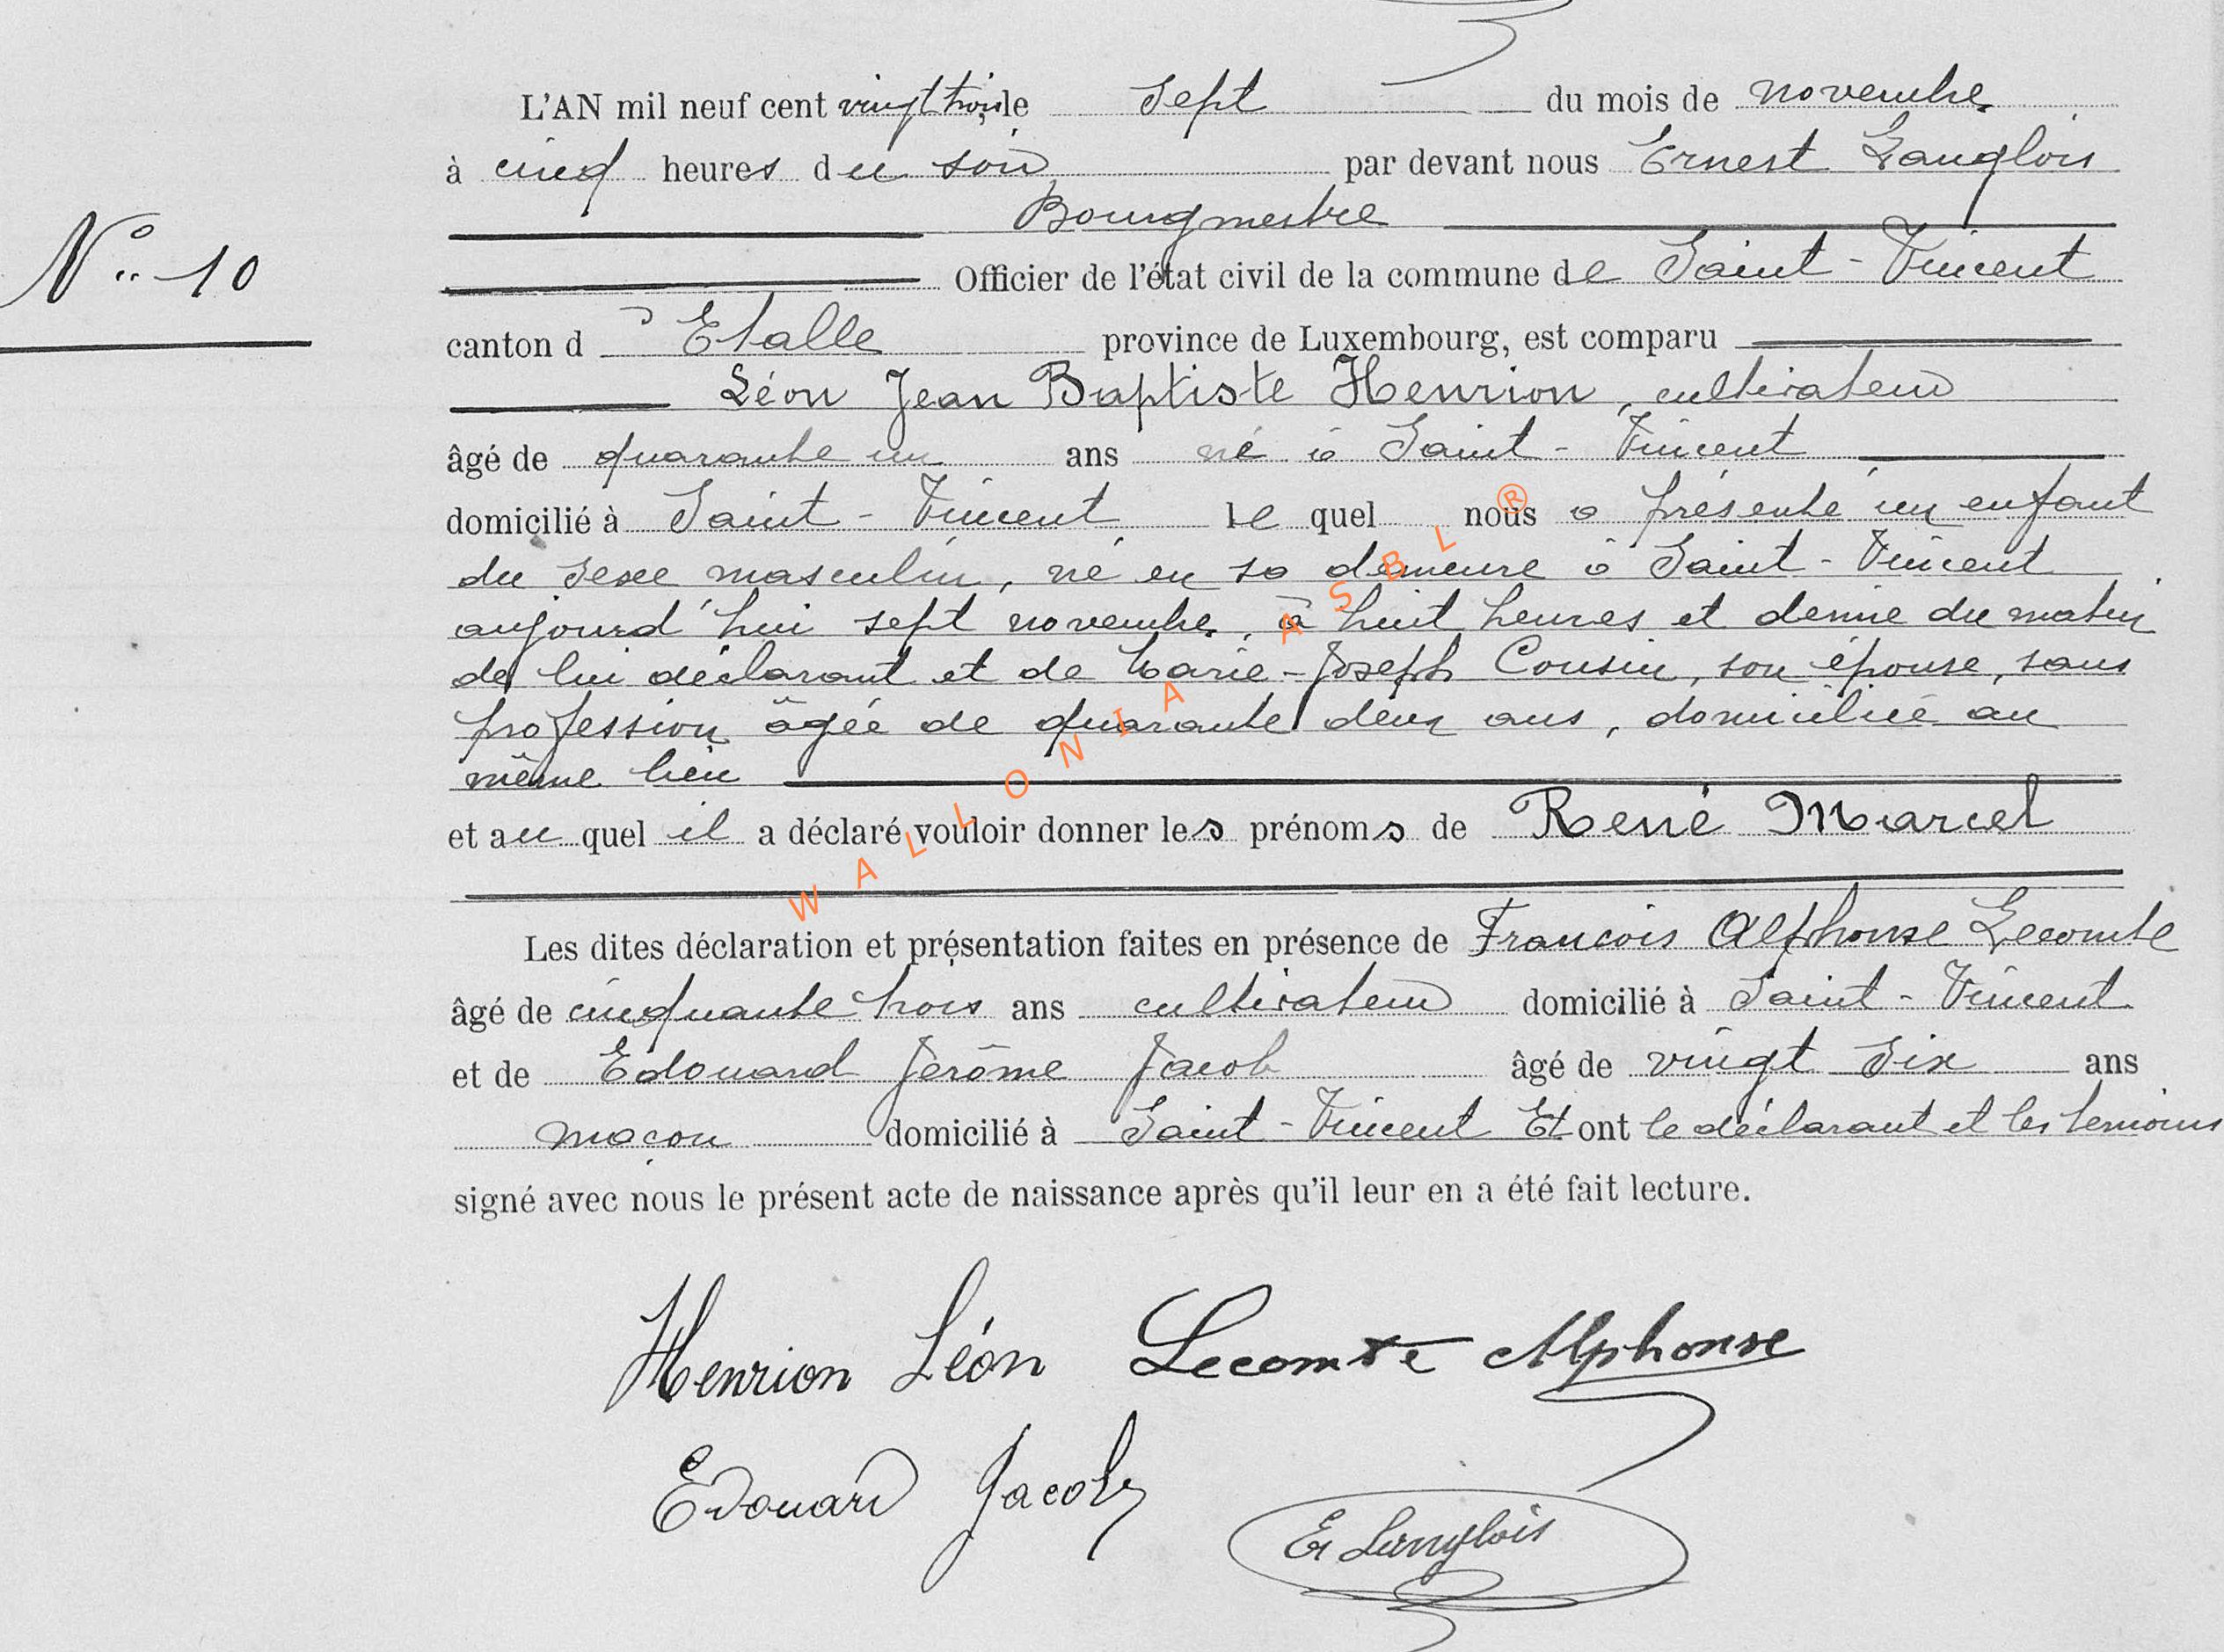 L'AN mil neuf cent vingt trois le sept du mois de novembre
à cinq heures du soir par devant nous Ernest Langlois
Bourgmestre
N° 10
Officier de l'état civil de la commune de Saint-Vincent
canton d' Etalle province de Luxembourg, est comparu
Léon Jean Baptiste Henrion, cultivateur
âgé de quarante un ans né à Saint-Vincent
domicilié à Saint-Vincent lequel nous a présenté un enfant
du sexe masculin, né en sa demeure à Saint-Vincent
aujourd'hui sept novembre, à huit heures et demie du matin
de lui déclarant et de Marie-Joseph Cousin, son épouse, sans
profession âgée de quarante deux ans, domiciliée au
même lieu
et auquel il a déclaré vouloir donner les prénoms de René Marcel
Les dites déclaration et présentation faites en présence de François Alphonse Lecomte
âgé de cinquante trois ans cultivateur domicilié à Saint-Vincent
et de Edouard Jérôme Jacob âgé de vingt six ans
maçon domicilié à Saint-Vincent Et ont le déclarant et les témoins
signé avec nous le présent acte de naissance après qu'il leur en a été fait lecture.
Henrion Léon Lecomte Alphonse
Edouard Jacob
Er Langlois
WALLONIA ASBL ®